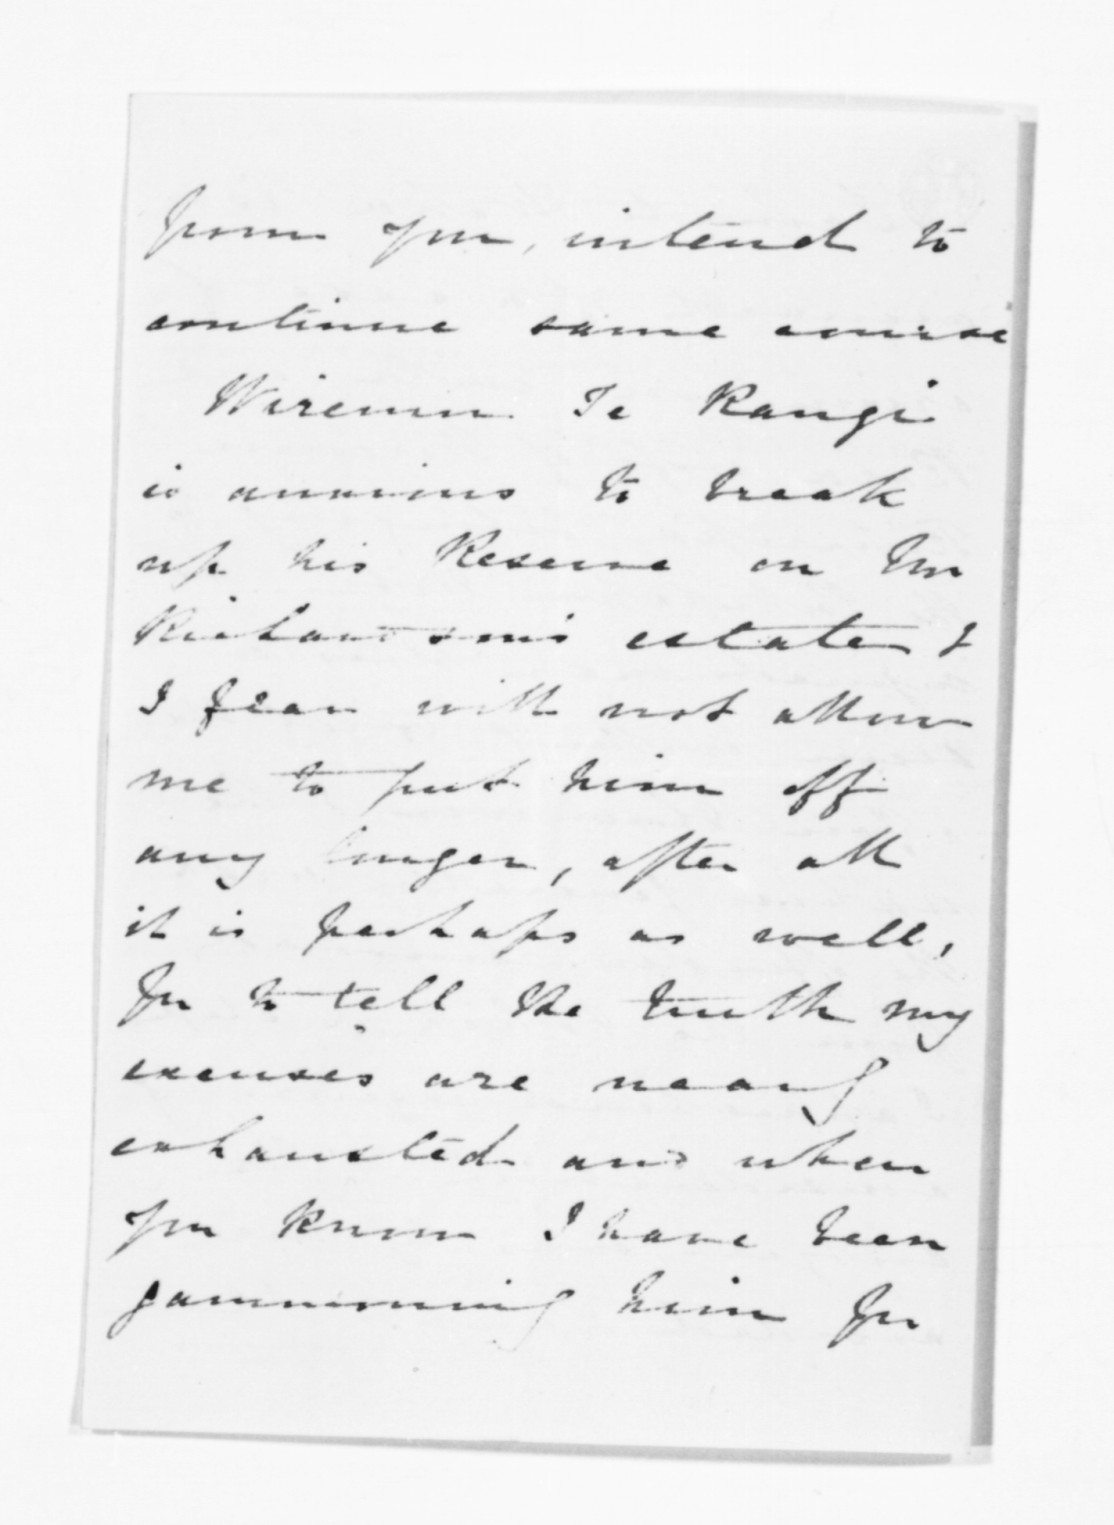 from you, intend to
continue same course
Wiremu Te Rangi
is anxious to break
up his Reserve on Mr
Richardson's estate &
I fear will not allow
me to put him off
any longer, after all
it is perhaps as well,
for to tell the truth my
excuses are nearly
exhausted and when
you know I have been
gammoning him for